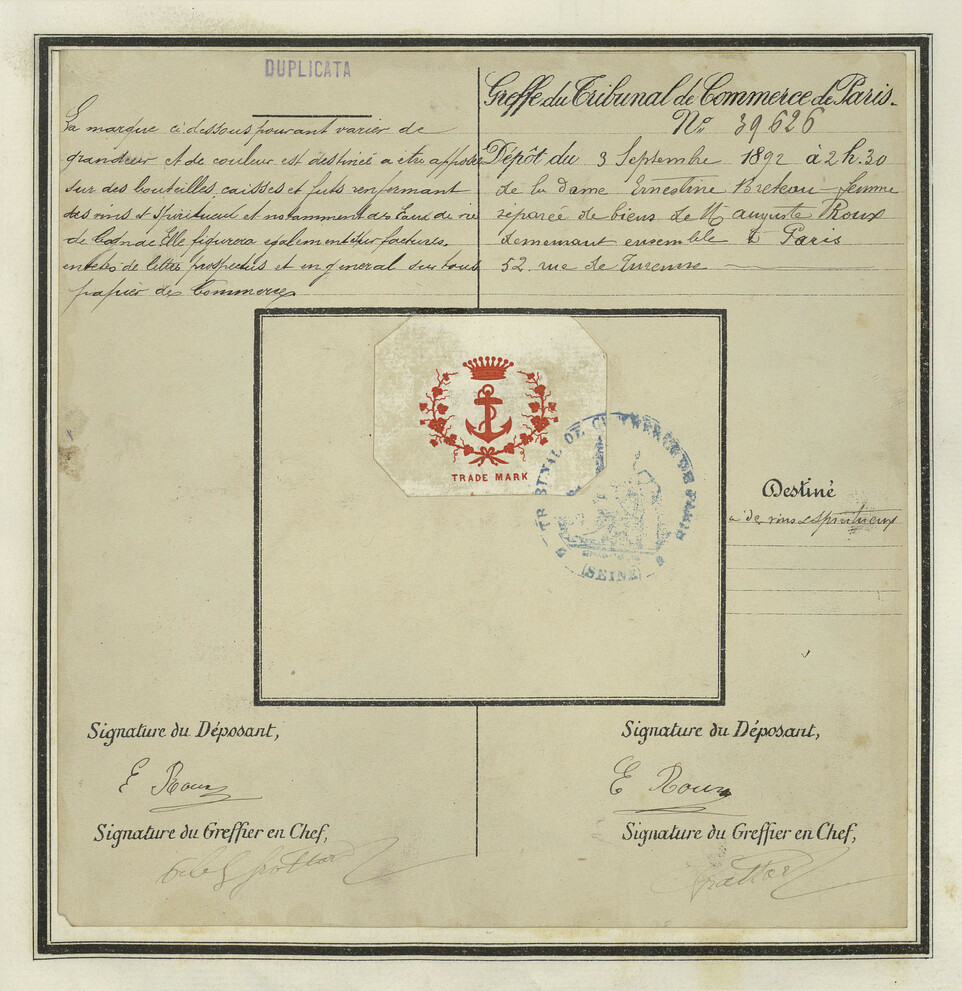 DUPLICATA
La marque ci dessous pouvant varier de
grandeur et de couleur est destinée a etre apposée
sur des bouteilles caisses et futs renfermant
des vins et spiritueux et notamment des Eaux de vie
de Cognac Elle figurera egalement sur factures.
entetes de lettres prospectus et en general sur tous
papier de Commerce
Greffe du Tribunal de Commerce de Paris.
No. 39626
Dépôt du 3 Septembre 1892 à 2h.30
de la dame Ernestine Breteau femme
séparée de biens de M. auguste Roux
demeurant ensemble à Paris
52. rue de Turenne
TRADE MARK
TRIBUNAL DE COMMERCE DE PARIS
(SEINE)
Destiné
a des vins et spiritueux
Signature du Déposant,
E Roux
Signature du Greffier en Chef,
Signature du Déposant,
E Roux
Signature du Greffier en Chef,